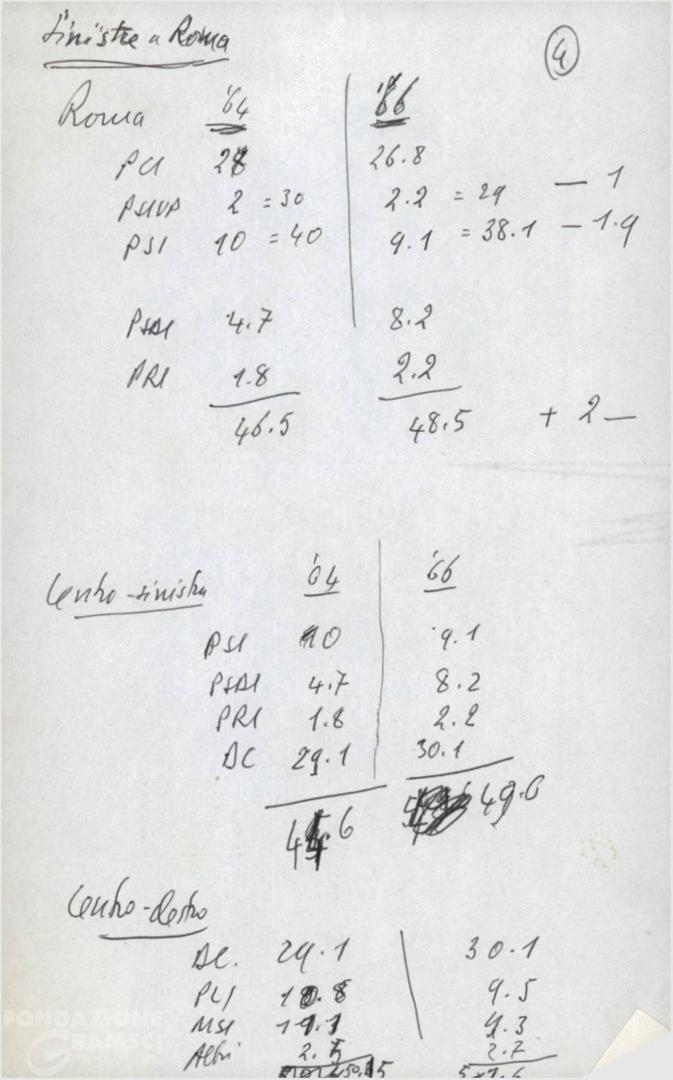 Sinistre a Roma
4
Roma '64 '66
PCI 28 26.8
PSIUP 2 = 30 2.2 = 29 — 1
PSI 10 = 40 9.1 = 38.1 — 1.9
PSDI 4.7 8.2
PRI 1.8 2.2
46.5 48.5 + 2 —
Centro-sinistra '64 '66
PSI 10 9.1
PSDI 4.7 8.2
PRI 1.8 2.2
DC 29.1 30.1
6 49.6
Centro-destra
DC. 29.1 30.1
PLI 10.8 9.5
MSI 9.3
Altri 2.7
FONDAZIONE
GRAMSCI